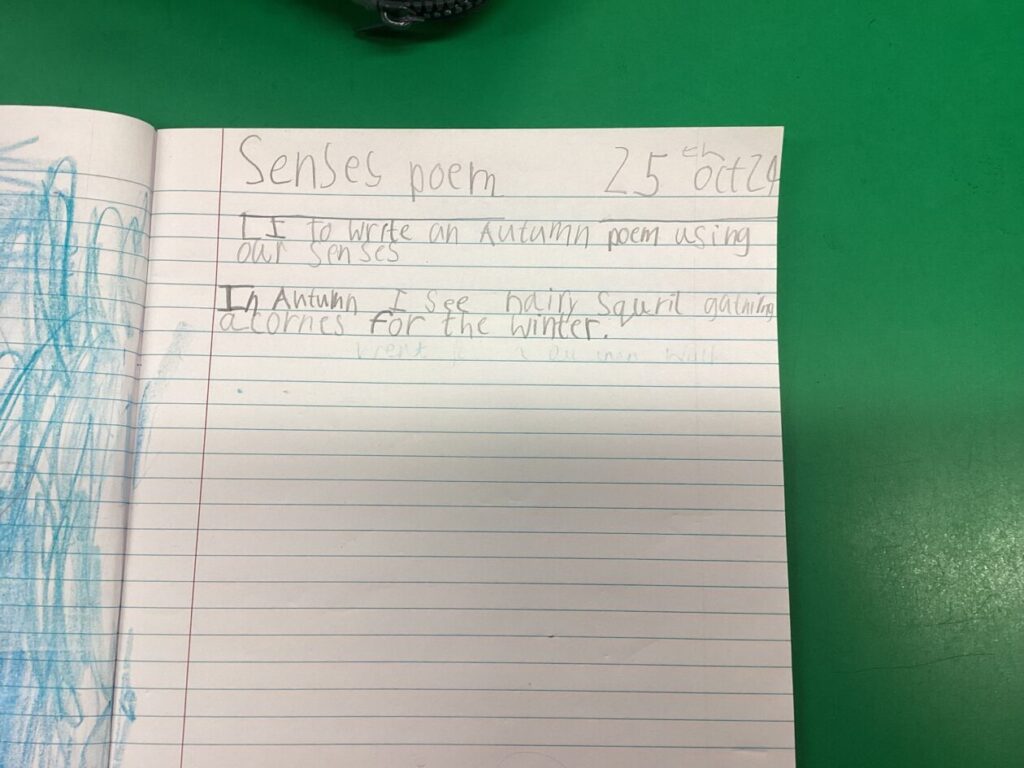 Senses poem 25th Oct24
L I to write an Autumn poem using
our senses
In Autumn I see hairy Squril gathing
acornes for the winter.